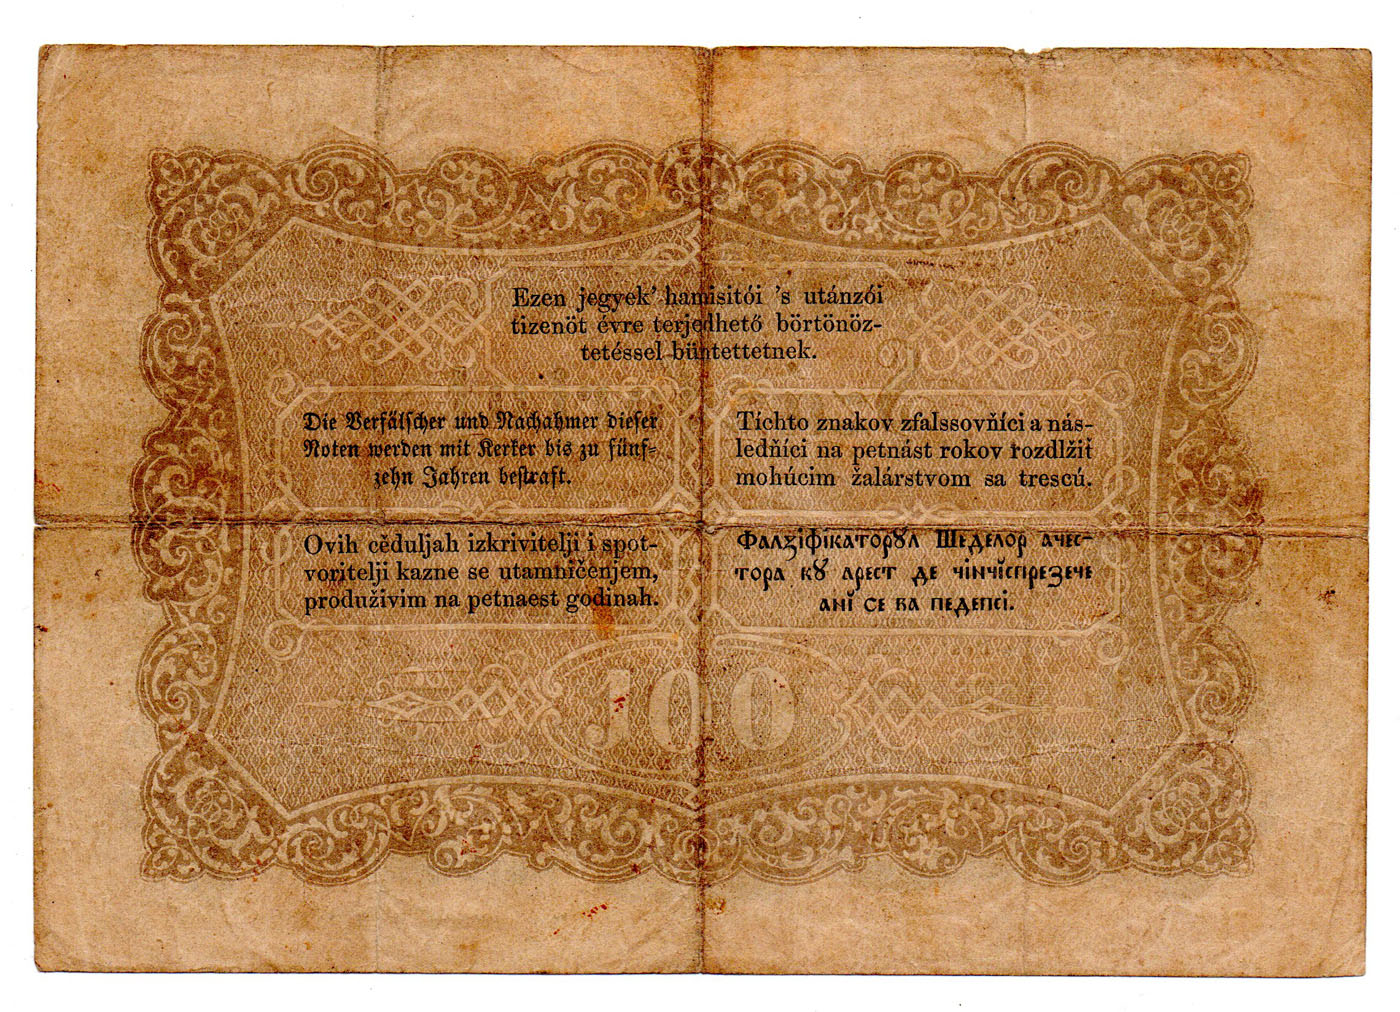 Ezen jegyek' hamisitói 's utánzói
tizenöt évre terjedhető börtönöz-
tetéssel büntettetnek.
Die Verfälscher und Nachahmer dieser
Noten werden mit Kerker bis zu fünf-
zehn Jahren bestraft.
Tíchto znakov zfalssovňíci a nás-
ledňíci na petnást rokov rozdlžiť
mohúcim žalárstvom sa trescú.
Ovih cěduljah izkrivitelji i spot-
voritelji kazne se utamničenjem,
produživim na petnaest godinah.
Фалꙁіфікаторꙋл Шеделор ачес-
тора кꙋ арест де чінчіспреꙁече
ані се ва педепсі.
100